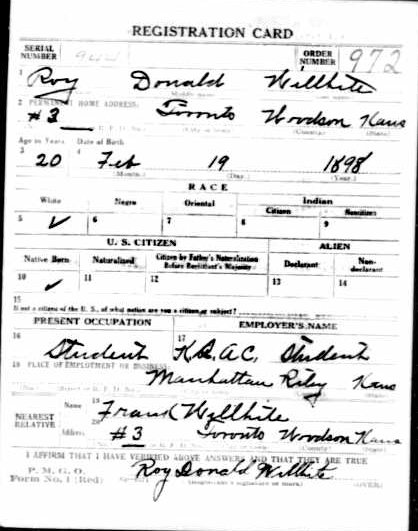 REGISTRATION CARD
SERIAL NUMBER
ORDER NUMBER 972
1 Roy Donald Willhite
2 PERMANENT HOME ADDRESS:
#3 Toronto Woodson Kans
Age in Years Date of Birth
3 20 4 Feb 19 1898
(Month.) (Day.) (Year.)
RACE
White Negro Oriental Indian
Citizen Noncitizen
5 ✓ 6 7 8 9
U. S. CITIZEN ALIEN
Native Born Naturalized Citizen by Father's Naturalization Before Registrant's Majority Declarant Non-declarant
10 ✓ 11 12 13 14
15
If not a citizen of the U. S., of what nation are you a citizen or subject?
PRESENT OCCUPATION EMPLOYER'S NAME
16 Student 17 K.S.A.C. Student
18 PLACE OF EMPLOYMENT OR BUSINESS:
Manhattan Riley Kans
NEAREST RELATIVE
Name 19 Frank Willhite
Address 20 #3 Toronto Woodson Kans
I AFFIRM THAT I HAVE VERIFIED ABOVE ANSWERS AND THAT THEY ARE TRUE
P. M. G. O.
Form No. 1 (Red) Roy Donald Willhite
(OVER)